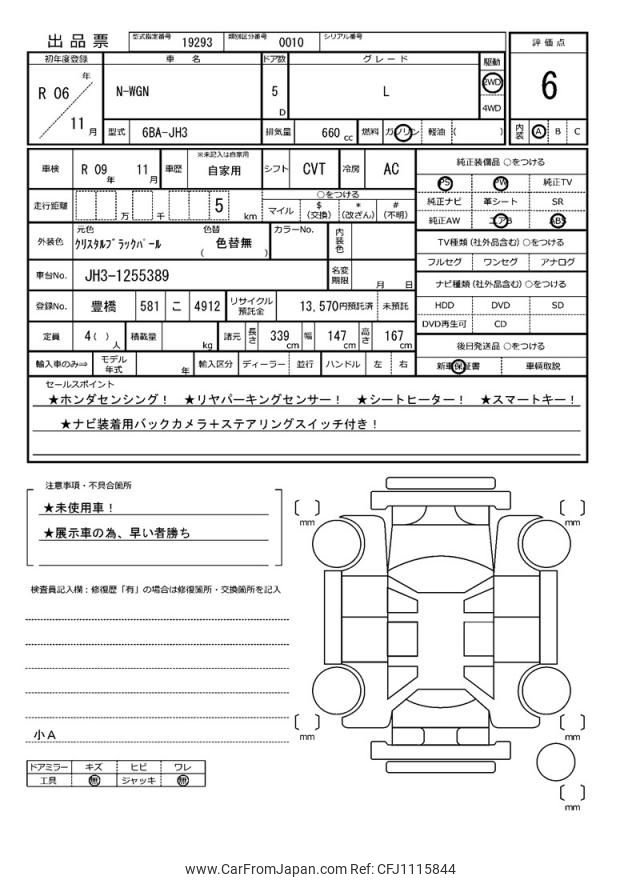 出品票 型式指定番号 19293 類別区分番号 0010 シリアル番号
初年度登録 車名 ドア数 グレード 駆動 評価点
R 06 年 11 月 N-WGN 5 D L 2WD 4WD 6
型式 6BA-JH3 排気量 660 cc 燃料 ガソリン 軽油 ( ) 内装 A B C
車検 R 09 年 11 月 車歴 ※未記入は自家用 自家用 シフト CVT 冷房 AC
走行距離 万 千 5 km ○をつける
マイル $(交換) *(改ざん) #(不明)
外装色 元色 クリスタルブラックパール 色替 ( 色替無 ) カラーNo. 内装色
車台No. JH3-1255389 名変期限 月 日
登録No. 豊橋 581 こ 4912 リサイクル預託金 13,570円預託済 未預託
定員 4 ( ) 人 積載量 kg 諸元 長さ 339 cm 幅 147 cm 高さ 167 cm
輸入車のみ⇒ モデル年式 年 輸入区分 ディーラー 並行 ハンドル 左 右
純正装備品 ○をつける
PS PW 純正TV
純正ナビ 革シート SR
純正AW エアB ABS
TV種類 (社外品含む) ○をつける
フルセグ ワンセグ アナログ
ナビ種類 (社外品含む) ○をつける
HDD DVD SD
DVD再生可 CD
後日発送品 ○をつける
新車保証書 車輌取説
セールスポイント
★ホンダセンシング！ ★リヤパーキングセンサー！ ★シートヒーター！ ★スマートキー！
★ナビ装着用バックカメラ＋ステアリングスイッチ付き！
注意事項・不具合箇所
★未使用車！
★展示車の為、早い者勝ち
検査員記入欄：修復歴「有」の場合は修復箇所・交換箇所を記入
小A
ドアミラー キズ ヒビ ワレ
工具 無 ジャッキ 無
[ ] mm [ ] mm
[ ] mm [ ] mm
[ ] mm
www.CarFromJapan.com Ref: CFJ1115844